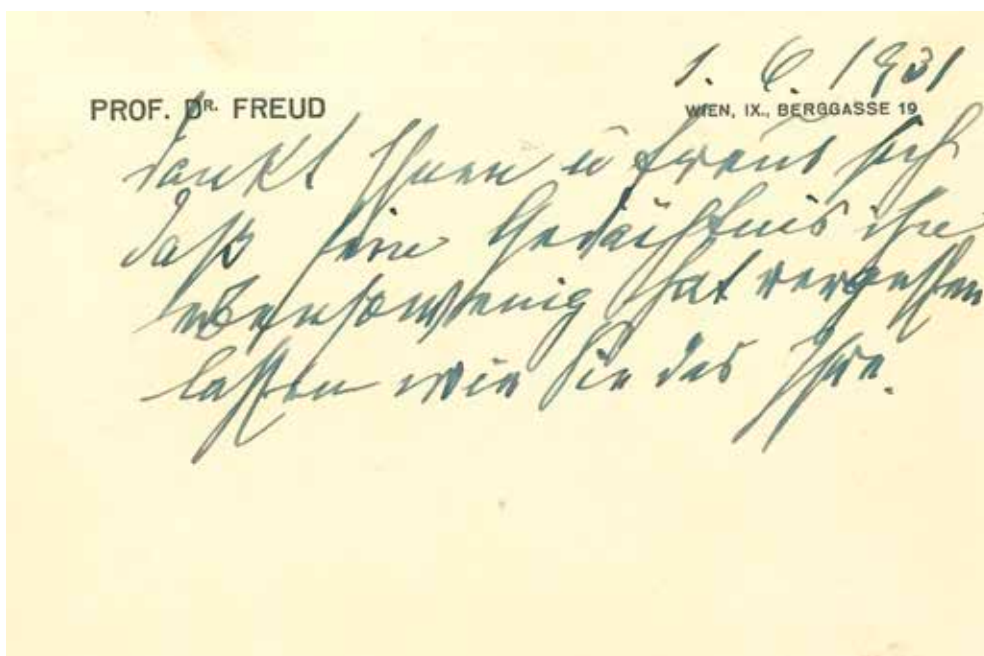 1. 6. 1931
PROF. DR. FREUD
WIEN, IX., BERGGASSE 19
dankt Ihnen u freut sich
daß sein Gedächtnis ihn
ebensowenig hat vergessen
lassen wie Sie das Ihre.